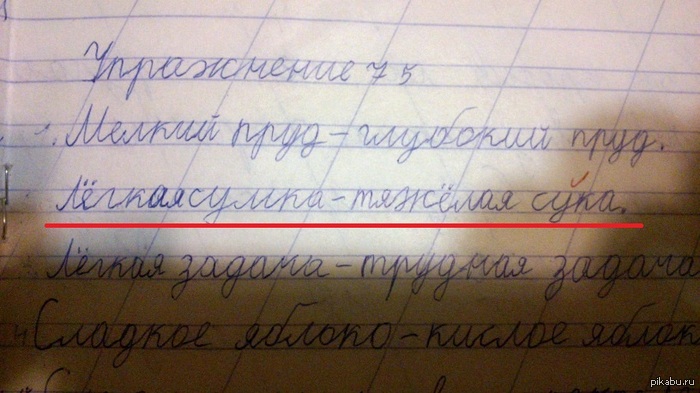 Упражнение 75
1. Мелкий пруд – глубокий пруд.
Лёгкая сумка – тяжёлая сука.
Лёгкая задача – трудная задача
4 Сладкое яблоко – кислое яблок
pikabu.ru